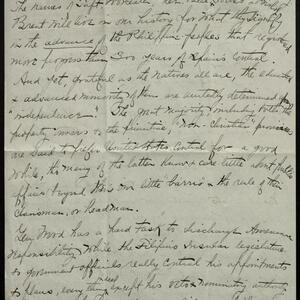 The names of Taft, Worcester,
Brent will live in our history for what they signify
in the advance of the Philippine peoples that registered
more progress than 300 years of Spain's control.
And yet, grateful as the natives all are, the educated
& advanced minority of them are austerely determined
"independence". The great majority, including both the
property owners & the primitive, "Non-Christian" provinces
are said to prefer United States control for a good
while, tho many of the latter know & care little about public
affairs beyond their own little barrios & the rule of their
clansman, or headman.
Gen Wood has a hard task to discharge American
responsibility while the Filipino insular legislature
& government officials really control his appointments
& plans, everything except his veto & nominating authority